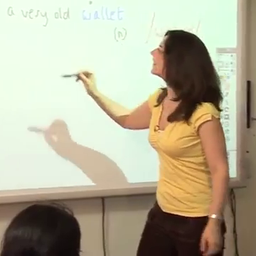 a very old wallet
(n)